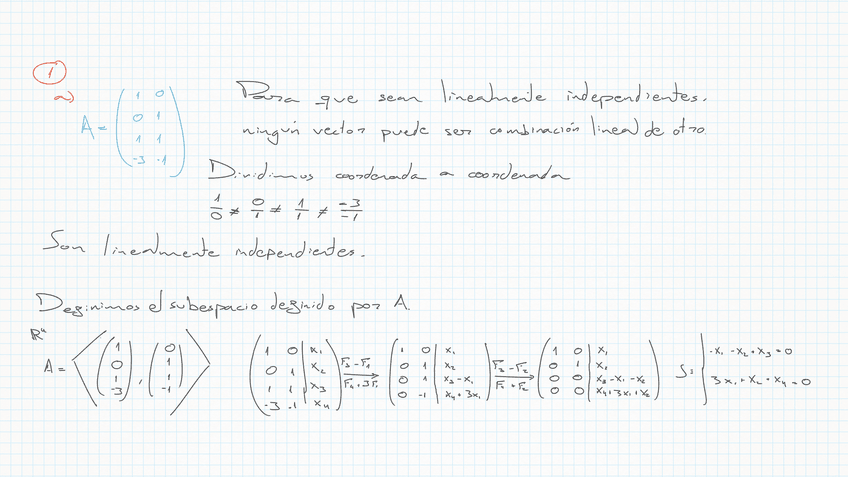 1
a)
A = ( 1 0 / 0 1 / 1 1 / -3 -1 )
Para que sean linealmente independientes.
ningún vector puede ser combinación lineal de otro.
Dividimos coordenada a coordenada
1/0 ≠ 0/1 ≠ 1/1 ≠ -3/-1
Son linealmente independientes.
Definimos el subespacio definido por A.
R⁴
A = < ( 1 / 0 / 1 / -3 ) , ( 0 / 1 / 1 / -1 ) >
( 1 0 | x₁ / 0 1 | x₂ / 1 1 | x₃ / -3 -1 | x₄ ) F₃-F₁ → F₄+3F₁ ( 1 0 | x₁ / 0 1 | x₂ / 0 1 | x₃-x₁ / 0 -1 | x₄+3x₁ ) F₃-F₂ → F₄+F₂ ( 1 0 | x₁ / 0 1 | x₂ / 0 0 | x₃-x₁-x₂ / 0 0 | x₄+3x₁+x₂ ) S: { -x₁-x₂+x₃=0 / 3x₁+x₂+x₄=0